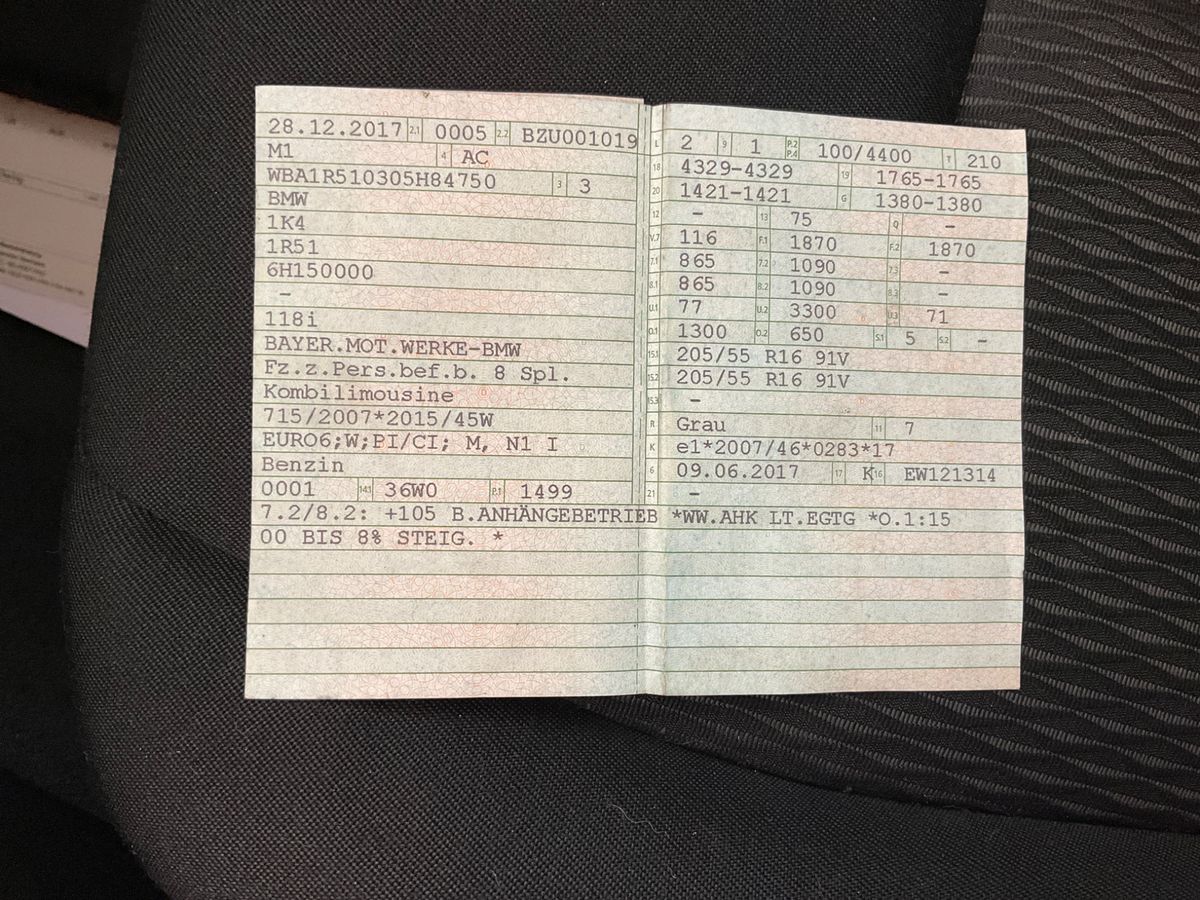 28.12.2017 2.1 0005 2.2 BZU001019
M1 4 AC
WBA1R510305H84750 3 3
BMW
1K4
1R51
6H150000
–
118i
BAYER.MOT.WERKE-BMW
Fz.z.Pers.bef.b. 8 Spl.
Kombilimousine
715/2007*2015/45W
EURO6;W;PI/CI; M, N1 I
Benzin
0001 14.1 36W0 P.1 1499
L 2 9 1 P.2 P.4 100/4400 T 210
18 4329-4329 19 1765-1765
20 1421-1421 G 1380-1380
12 – 13 75 Q –
V.7 116 F.1 1870 F.2 1870
7.1 865 7.2 1090 7.3 –
8.1 865 8.2 1090 8.3 –
U.1 77 U.2 3300 U.3 71
O.1 1300 O.2 650 S.1 5 S.2 –
15.1 205/55 R16 91V
15.2 205/55 R16 91V
15.3 –
R Grau 11 7
K e1*2007/46*0283*17
6 09.06.2017 17 K 16 EW121314
21 –
7.2/8.2: +105 B.ANHÄNGEBETRIEB *WW.AHK LT.EGTG *O.1:15
00 BIS 8% STEIG. *